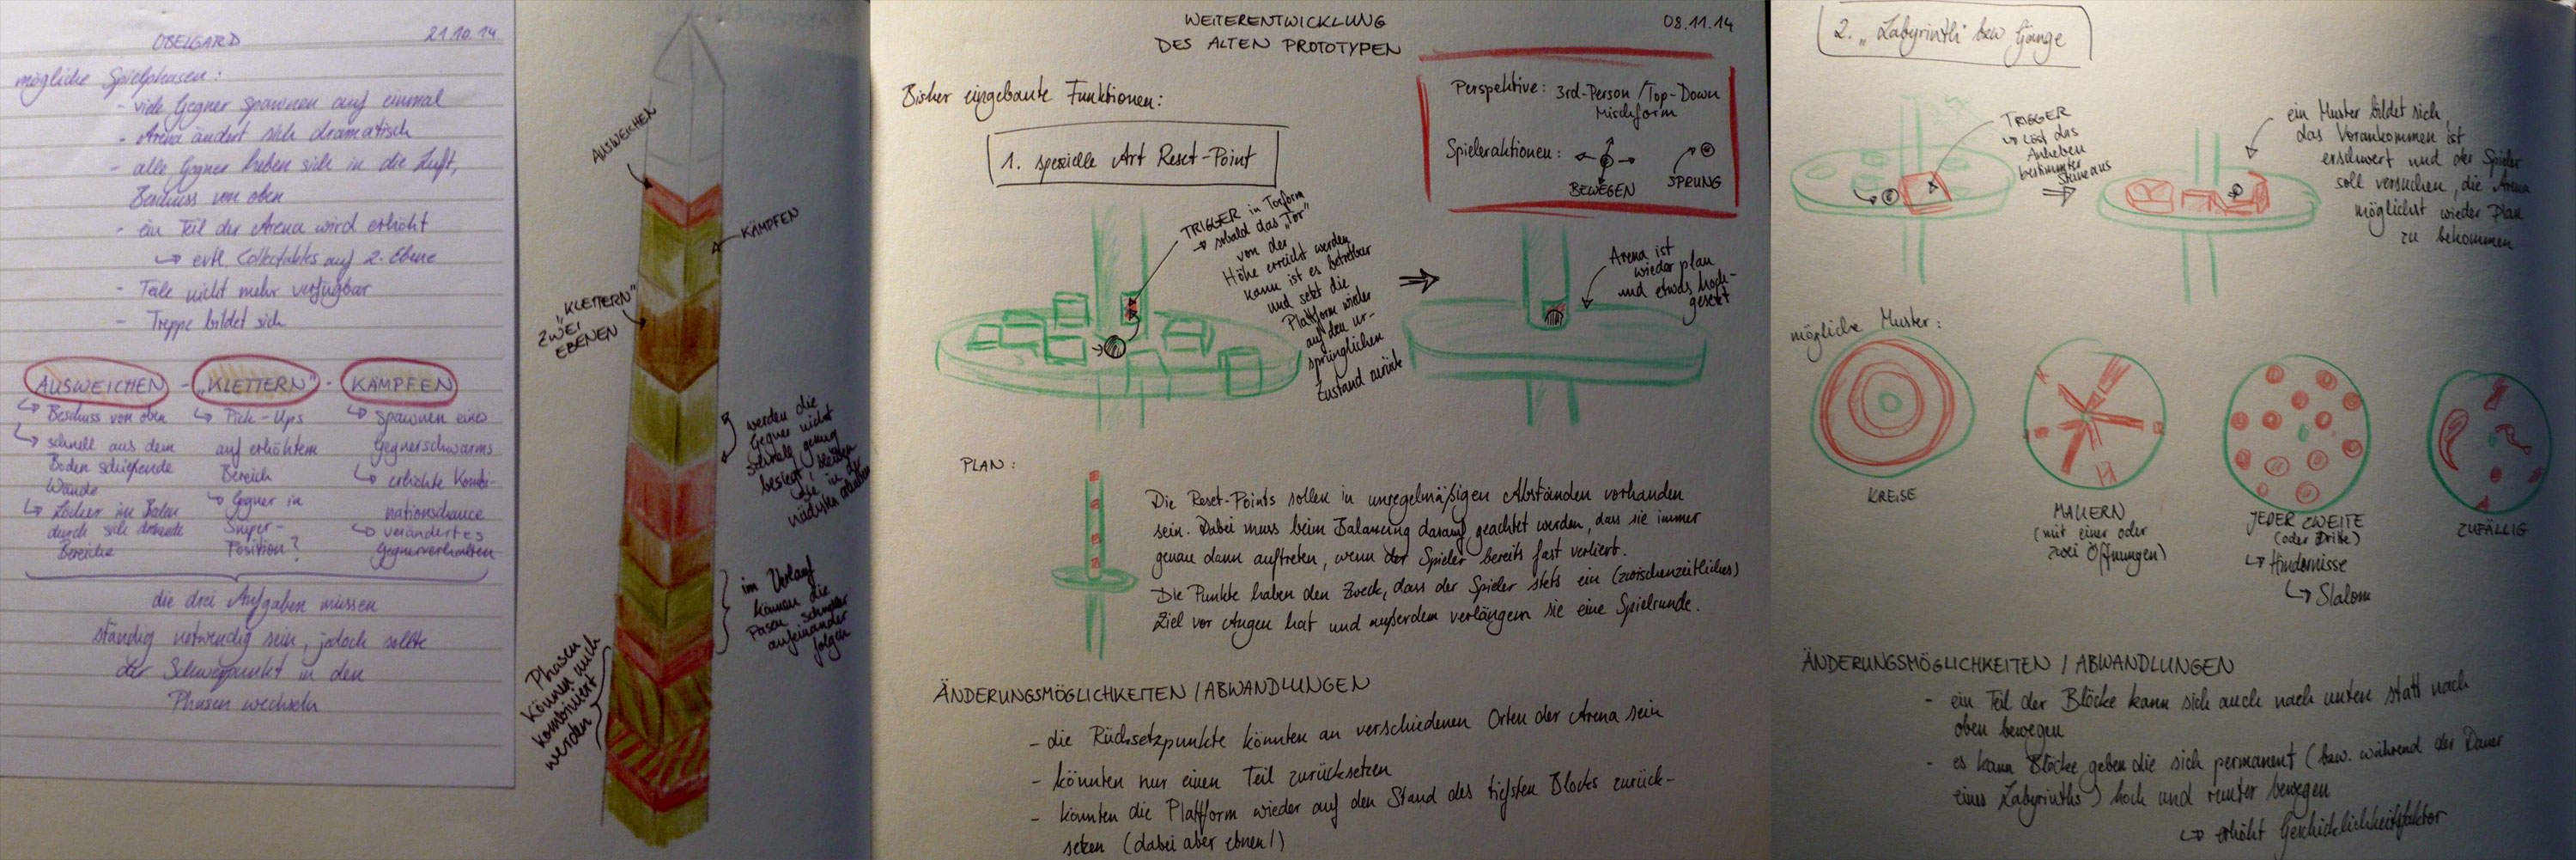 OBELGARD 21.10.14
mögliche Spielphasen:
- viele Gegner spawnen auf einmal
- Arena ändert sich dramatisch
- alle Gegner heben sich in die Luft,
Beschuss von oben
- ein Teil der Arena wird erhöht
↳ evtl. Collectables auf 2. Ebene
- Teile nicht mehr verfügbar
- Treppe bildet sich
AUSWEICHEN - "KLETTERN" - KÄMPFEN
↳ Beschuss von oben
↳ schnell aus dem
Boden schießende
Wände
↳ Löcher im Boden
durch sich drehende
Bereiche
↳ Pick-Ups
auf erhöhtem
Bereich
↳ Gegner in
Sniper-
Position?
↳ Spawnen eines
Gegnerschwarms
↳ erhöhte Kombi-
nationschance
↳ verändertes
Gegnerverhalten
die drei Aufgaben müssen
ständig notwendig sein, jedoch sollte
der Schwerpunkt in den
Phasen wechseln
AUSWEICHEN
KÄMPFEN
"KLETTERN"
ZWEI
EBENEN
werden die
Gegner nicht
schnell genug
besiegt, bleiben
sie in der
nächsten erhalten
im Verlauf
können die
Pasen schneller
aufeinander
folgen
Phasen
können auch
kombiniert
werden
WEITERENTWICKLUNG
DES ALTEN PROTOTYPEN
08.11.14
Bisher eingebaute Funktionen:
Perspektive: 3rd-Person / Top-Down
Mischform
Spieleraktionen:
BEWEGEN
SPRUNG
1. spezielle Art Reset-Point
TRIGGER in Torform
→ sobald das "Tor"
von der
Höhe erreicht werden
kann ist es betretbar
und setzt die
Plattform wieder
auf den ur-
sprünglichen
Zustand zurück
Arena ist
wieder plan
und etwas hoch-
gesetzt
PLAN:
Die Reset-Points sollen in unregelmäßigen Abständen vorhanden
sein. Dabei muss beim Balancing darauf geachtet werden, dass sie immer
genau dann auftreten, wenn der Spieler bereits fast verliert.
Die Punkte haben den Zweck, dass der Spieler stets ein (zwischenzeitliches)
Ziel vor Augen hat und außerdem verlängern sie eine Spielrunde.
ÄNDERUNGSMÖGLICHKEITEN / ABWANDLUNGEN
- die Rücksetzpunkte könnten an verschiedenen Orten der Arena sein
- könnten nur einen Teil zurücksetzen
- könnten die Plattform wieder auf den Stand des tiefsten Blocks zurück-
setzen (dabei aber ebnen!)
2. "Labyrinth" bzw Gänge
TRIGGER
↳ löst das
Anheben
bestimmter
Steine aus
ein Muster bildet sich,
das Vorankommen ist
erschwert und der Spieler
soll versuchen, die Arena
möglichst wieder Plan
zu bekommen
mögliche Muster:
KREISE
MAUERN
(mit einer oder
zwei Öffnungen)
JEDER ZWEITE
(oder Dritte)
↳ Hindernisse
↳ Slalom
ZUFÄLLIG
ÄNDERUNGSMÖGLICHKEITEN / ABWANDLUNGEN
- ein Teil der Blöcke kann sich auch nach unten statt nach
oben bewegen
- es kann Blöcke geben die sich permanent (bzw. während der Dauer
eines Labyrinths) hoch und runter bewegen
↳ erhöht Geschicklichkeitsfaktor